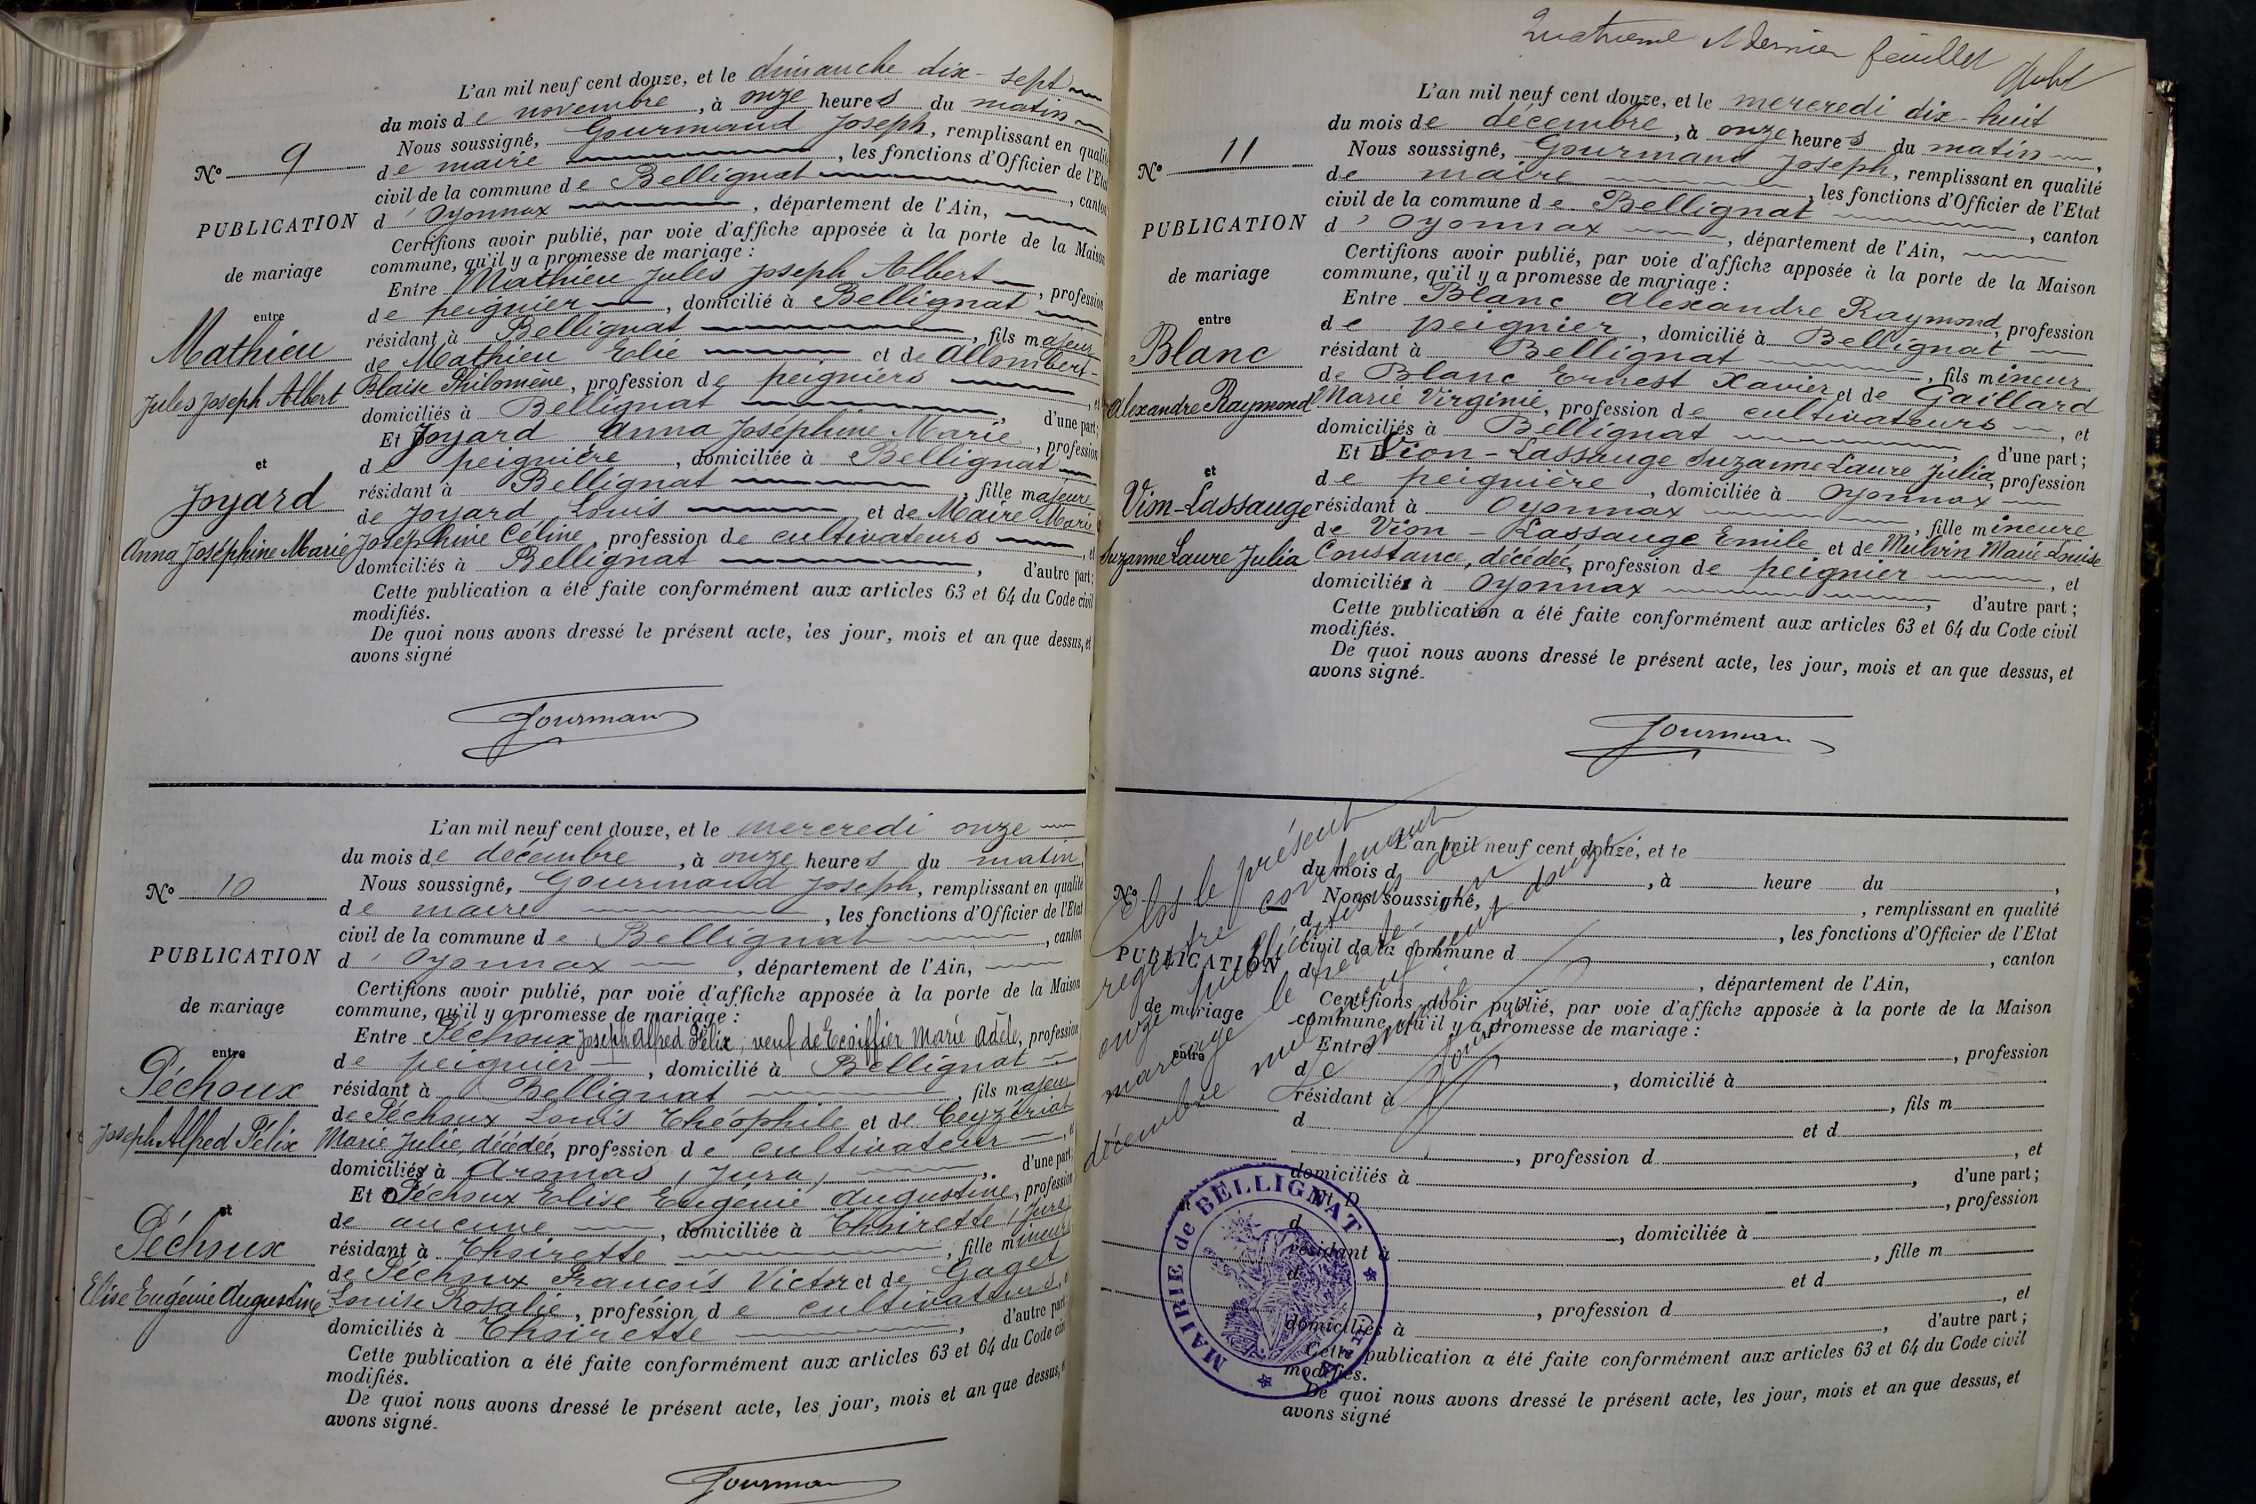 L'an mil neuf cent douze, et le dimanche dix-sept
du mois de novembre, à onze heures du matin
Nous soussigné, Gourmand Joseph, remplissant en qualité
de maire, les fonctions d'Officier de l'Etat
civil de la commune de Bellignat, canton
d'Oyonnax, département de l'Ain,
Certifions avoir publié, par voie d'affiche apposée à la porte de la Maison
commune, qu'il y a promesse de mariage :
Entre Mathieu Jules Joseph Albert, profession
de peignier, domicilié à Bellignat
résidant à Bellignat, fils majeur
de Mathieu Elie et de Allombert-
Blaise Philomène, profession de peigniers, et
domiciliés à Bellignat, d'une part ;
Et Joyard Anna Joséphine Marie, profession
de peignière, domiciliée à Bellignat
résidant à Bellignat, fille majeure
de Joyard Louis et de Maire Marie
Joséphine Céline, profession de cultivateurs, et
domiciliés à Bellignat, d'autre part ;
Cette publication a été faite conformément aux articles 63 et 64 du Code civil
modifiés.
De quoi nous avons dressé le présent acte, les jour, mois et an que dessus, et
avons signé
Gourmand
N° 9
PUBLICATION
de mariage
entre
Mathieu
Jules Joseph Albert
et
Joyard
Anna Joséphine Marie
L'an mil neuf cent douze, et le mercredi onze
du mois de décembre, à onze heures du matin
Nous soussigné, Gourmand Joseph, remplissant en qualité
de maire, les fonctions d'Officier de l'Etat
civil de la commune de Bellignat, canton
d'Oyonnax, département de l'Ain,
Certifions avoir publié, par voie d'affiche apposée à la porte de la Maison
commune, qu'il y a promesse de mariage :
Entre Péchoux Joseph Alfred Félix, veuf de Ecoiffier Marie Adèle, profession
de peignier, domicilié à Bellignat
résidant à Bellignat, fils majeur
de Péchoux Louis Théophile et de Ceyzériat
Marie Julie, décédée, profession de cultivateur, et
domicilié à Aromas (Jura), d'une part
Et Péchoux Elise Eugénie Augustine, profession
de aucune, domiciliée à Thoirette (Jura)
résidant à Thoirette, fille mineure
de Péchoux François Victor et de Gaget
Louise Rosalie, profession de cultivateurs, et
domiciliés à Thoirette, d'autre part
Cette publication a été faite conformément aux articles 63 et 64 du Code civil
modifiés.
De quoi nous avons dressé le présent acte, les jour, mois et an que dessus, et
avons signé.
Gourmand
N° 10
PUBLICATION
de mariage
entre
Péchoux
Joseph Alfred Félix
et
Péchoux
Elise Eugénie Augustine
Quatrième et dernier feuillet
L'an mil neuf cent douze, et le mercredi dix-huit
du mois de décembre, à onze heures du matin,
Nous soussigné, Gourmand Joseph, remplissant en qualité
de maire, les fonctions d'Officier de l'Etat
civil de la commune de Bellignat, canton
d'Oyonnax, département de l'Ain,
Certifions avoir publié, par voie d'affiche apposée à la porte de la Maison
commune, qu'il y a promesse de mariage :
Entre Blanc Alexandre Raymond, profession
de peignier, domicilié à Bellignat
résidant à Bellignat, fils mineur
de Blanc Ernest Xavier et de Gaillard
Marie Virginie, profession de cultivateurs, et
domiciliés à Bellignat, d'une part ;
Et Vion-Lassauge Suzanne Laure Julia, profession
de peignière, domiciliée à Oyonnax
résidant à Oyonnax, fille mineure
de Vion-Lassauge Emile et de Mulvin Marie Louise
Constance, décédée, profession de peignier, et
domicilié à Oyonnax, d'autre part ;
Cette publication a été faite conformément aux articles 63 et 64 du Code civil
modifiés.
De quoi nous avons dressé le présent acte, les jour, mois et an que dessus, et
avons signé.
Gourmand
N° 11
PUBLICATION
de mariage
entre
Blanc
Alexandre Raymond
et
Vion-Lassauge
Suzanne Laure Julia
L'an mil neuf cent douze, et le
du mois d , à heure du ,
Nous soussigné, , remplissant en qualité
d , les fonctions d'Officier de l'Etat
civil de la commune d , canton
d , département de l'Ain,
Certifions avoir publié, par voie d'affiche apposée à la porte de la Maison
commune, qu'il y a promesse de mariage :
Entre , profession
d , domicilié à
résidant à , fils m
d et d
, profession d , et
domiciliés à , d'une part ;
Et , profession
d , domiciliée à
résidant à , fille m
d et d
, profession d , et
domiciliés à , d'autre part ;
Cette publication a été faite conformément aux articles 63 et 64 du Code civil
modifiés.
De quoi nous avons dressé le présent acte, les jour, mois et an que dessus, et
avons signé
N°
PUBLICATION
de mariage
entre
Clos le présent
registre contenant
onze publications de
mariage le trente et un
décembre mil neuf cent douze
Le maire
Gourmand
MAIRIE de BELLIGNAT
(Ain)